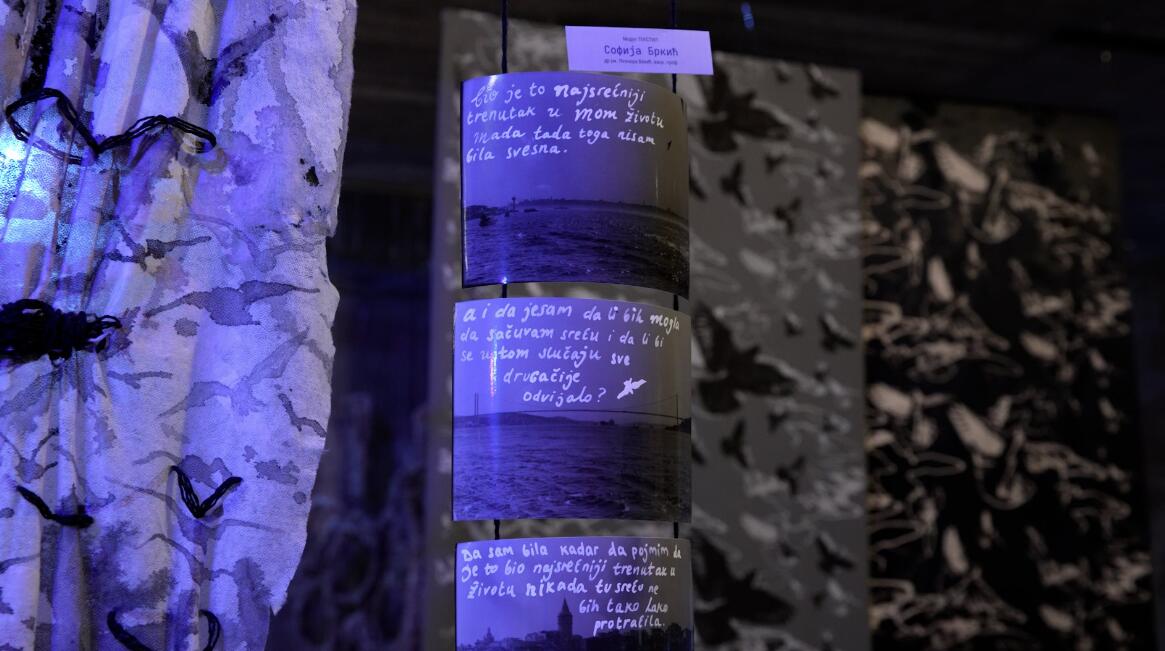 Софија Бркић
bio je to najsrećniji
trenutak u mom životu
mada tada toga nisam
bila svesna.
a i da jesam da li bih mogla
da sačuvam sreću i da li bi
se u tom slučaju sve
drugačije
odvijalo?
Da sam bila kadar da pojmim da
je to bio najsrećniji trenutak u
životu nikada tu sreću ne
bih tako lako
protraćila.